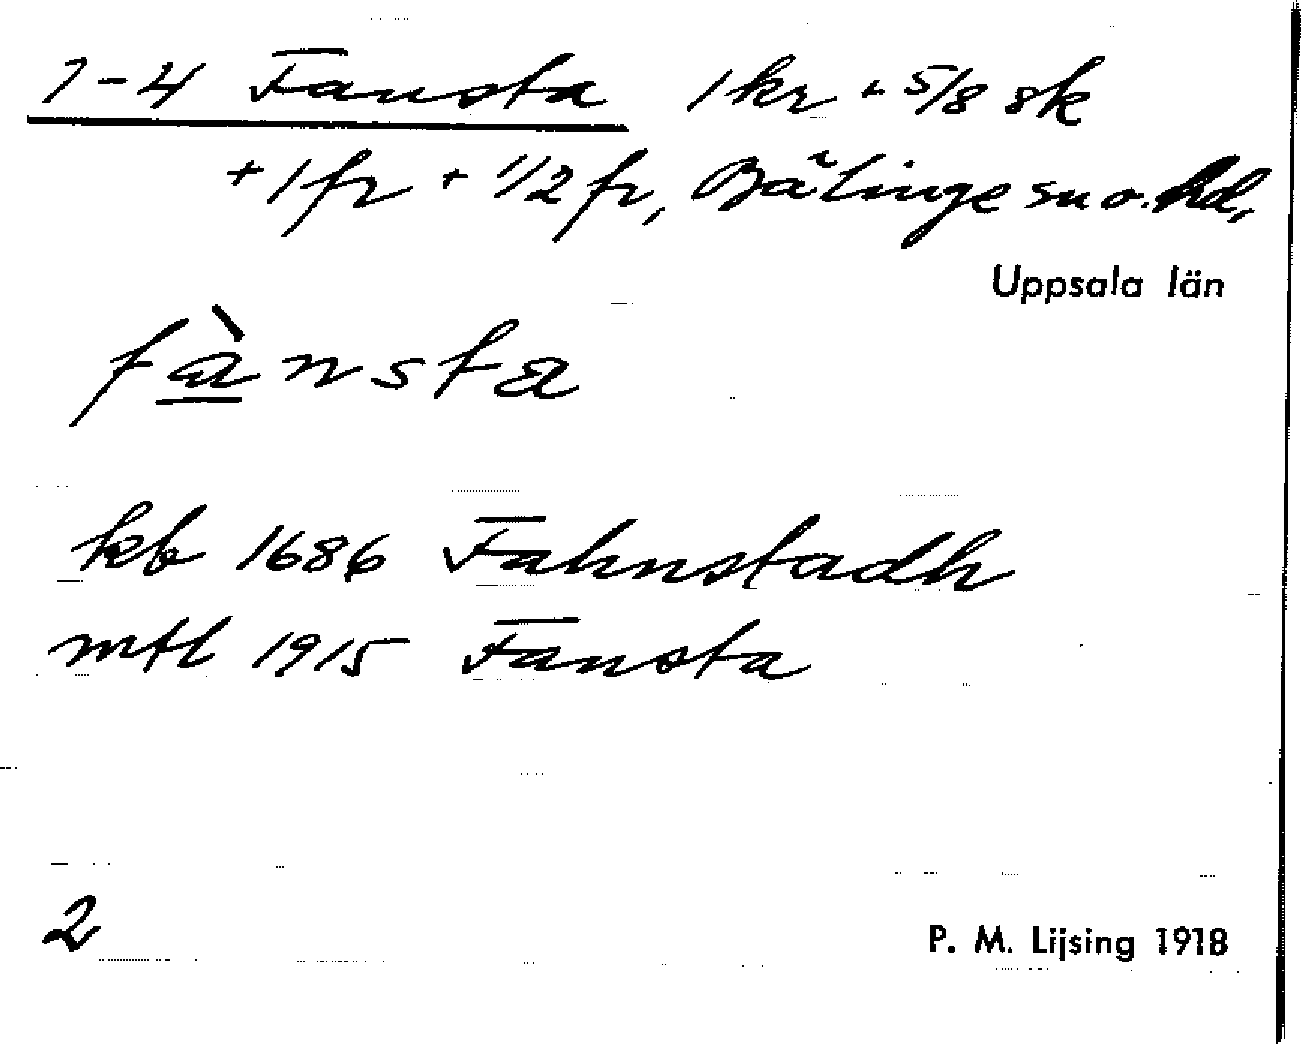 1-4 Fansta 1 kr + 5/8 sk
+ 1 fr + 1/2 fr, Bälinge sn o. hd,
Uppsala län
fànsta
kb 1686 Fahnstadh
mtl 1915 Fansta
2
P. M. Lijsing 1918